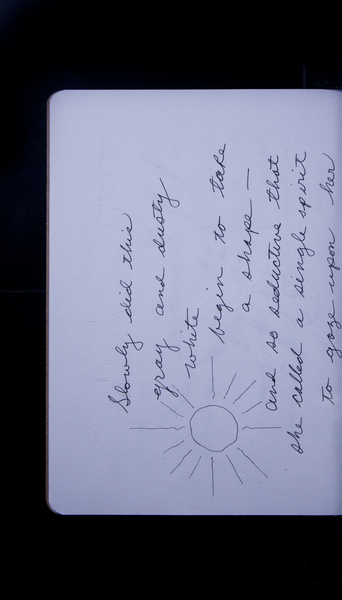 Slowly did this
gray and dusty
white
begin to take
a shape —
and so seductive that
she called a single spirit
to gaze upon her